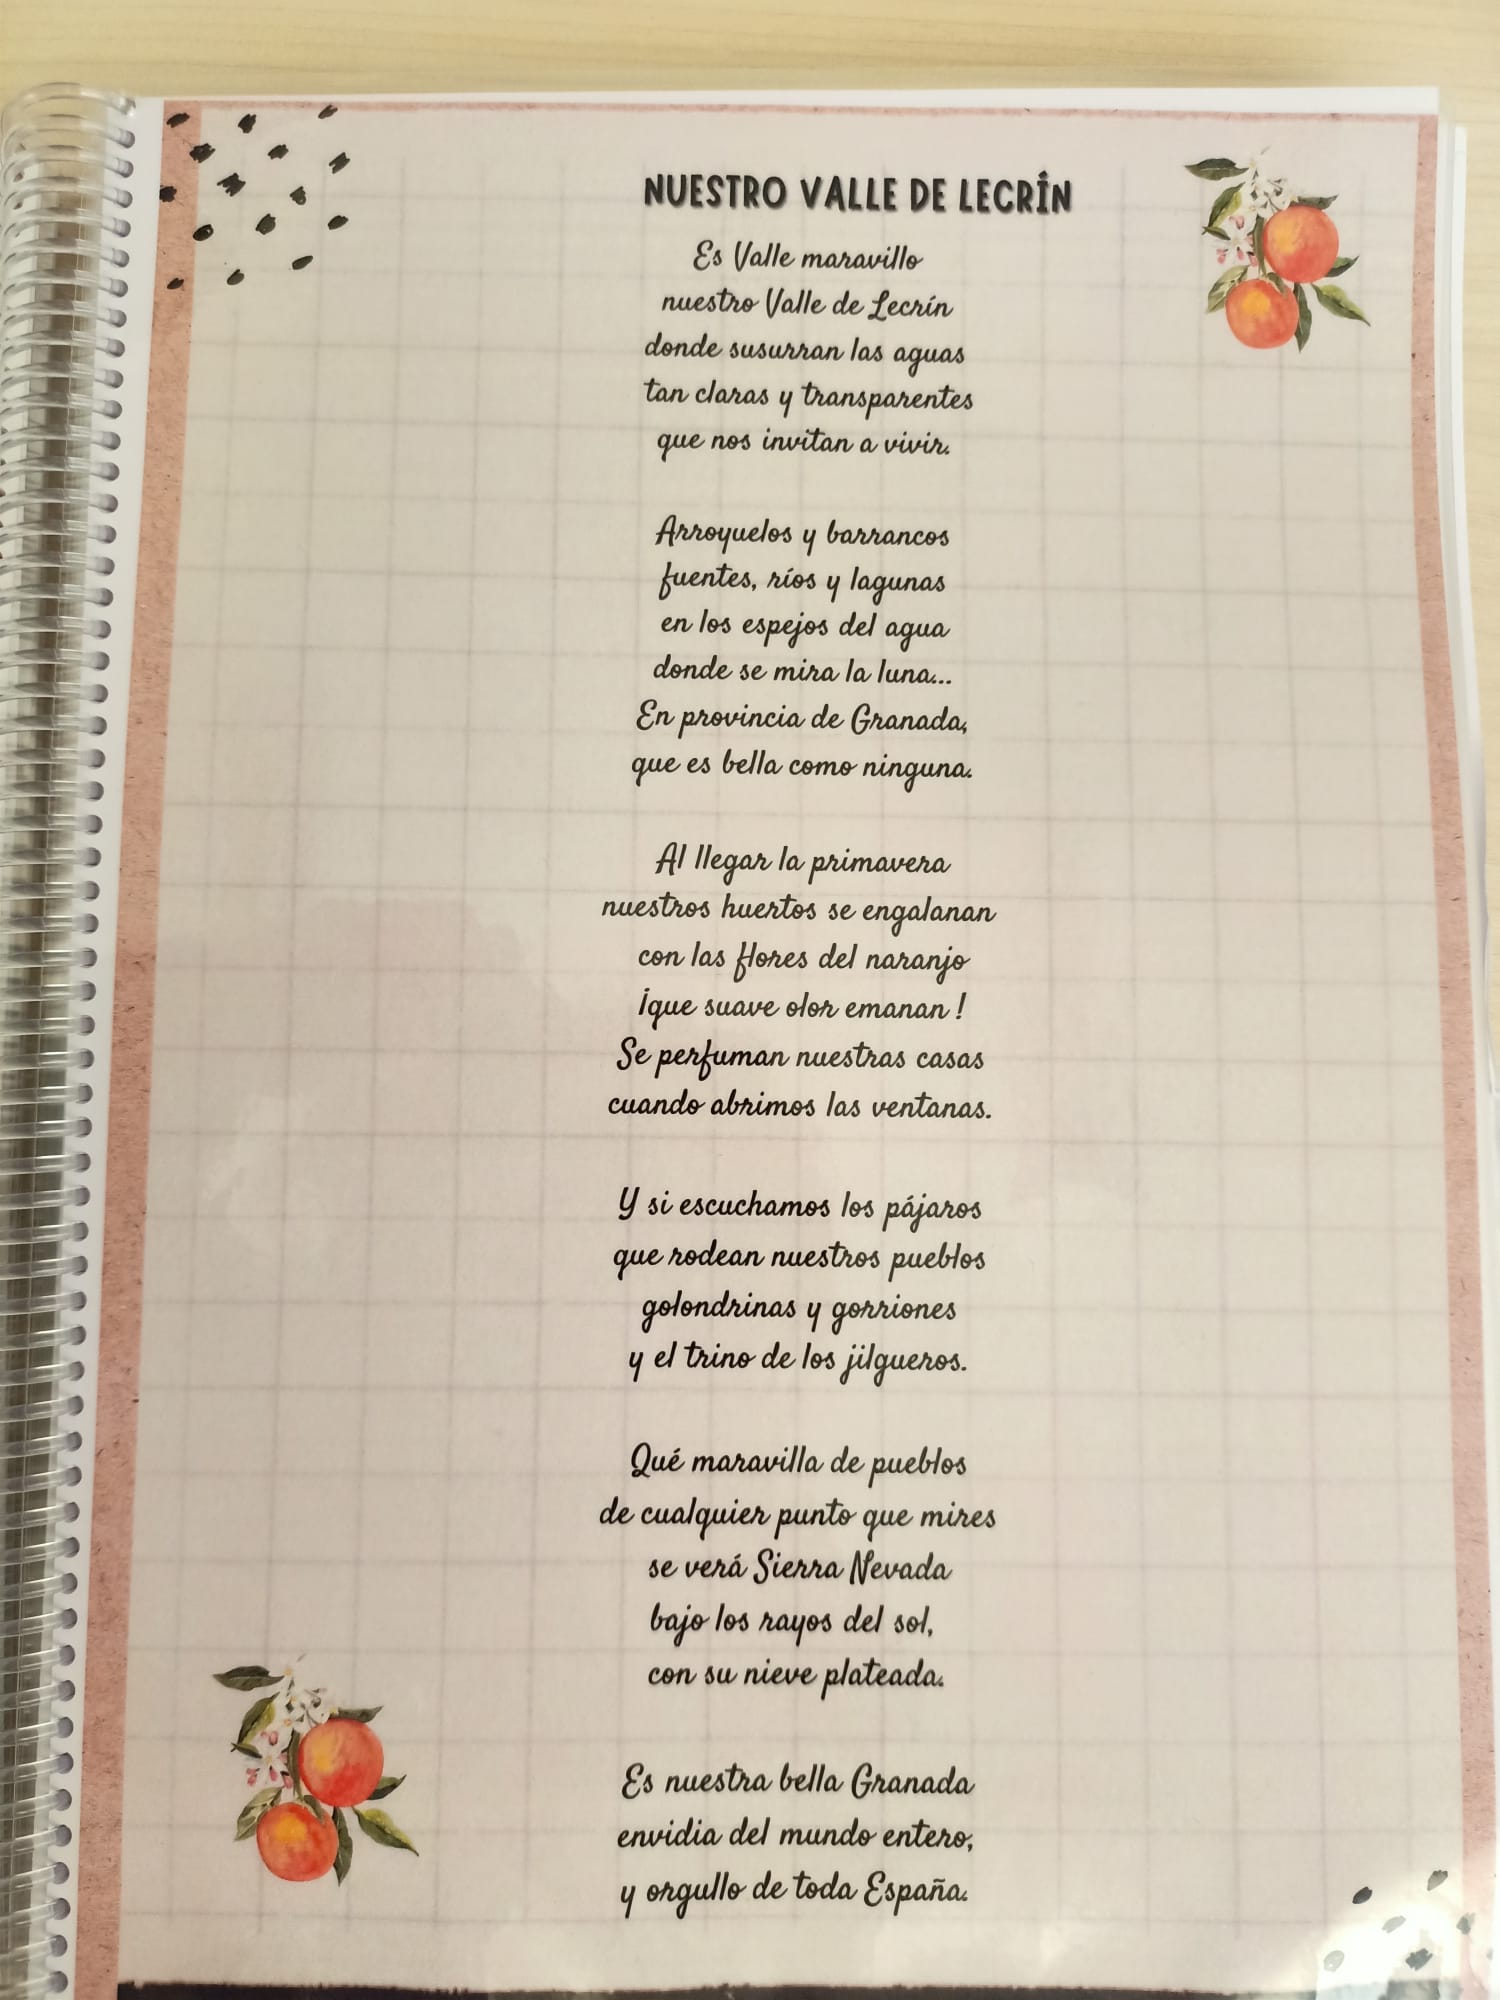 NUESTRO VALLE DE LECRÍN
Es Valle maravillo
nuestro Valle de Lecrín
donde susurran las aguas
tan claras y transparentes
que nos invitan a vivir.
Arroyuelos y barrancos
fuentes, ríos y lagunas
en los espejos del agua
donde se mira la luna...
En provincia de Granada,
que es bella como ninguna.
Al llegar la primavera
nuestros huertos se engalanan
con las flores del naranjo
¡que suave olor emanan !
Se perfuman nuestras casas
cuando abrimos las ventanas.
Y si escuchamos los pájaros
que rodean nuestros pueblos
golondrinas y gorriones
y el trino de los jilgueros.
Qué maravilla de pueblos
de cualquier punto que mires
se verá Sierra Nevada
bajo los rayos del sol,
con su nieve plateada.
Es nuestra bella Granada
envidia del mundo entero,
y orgullo de toda España.